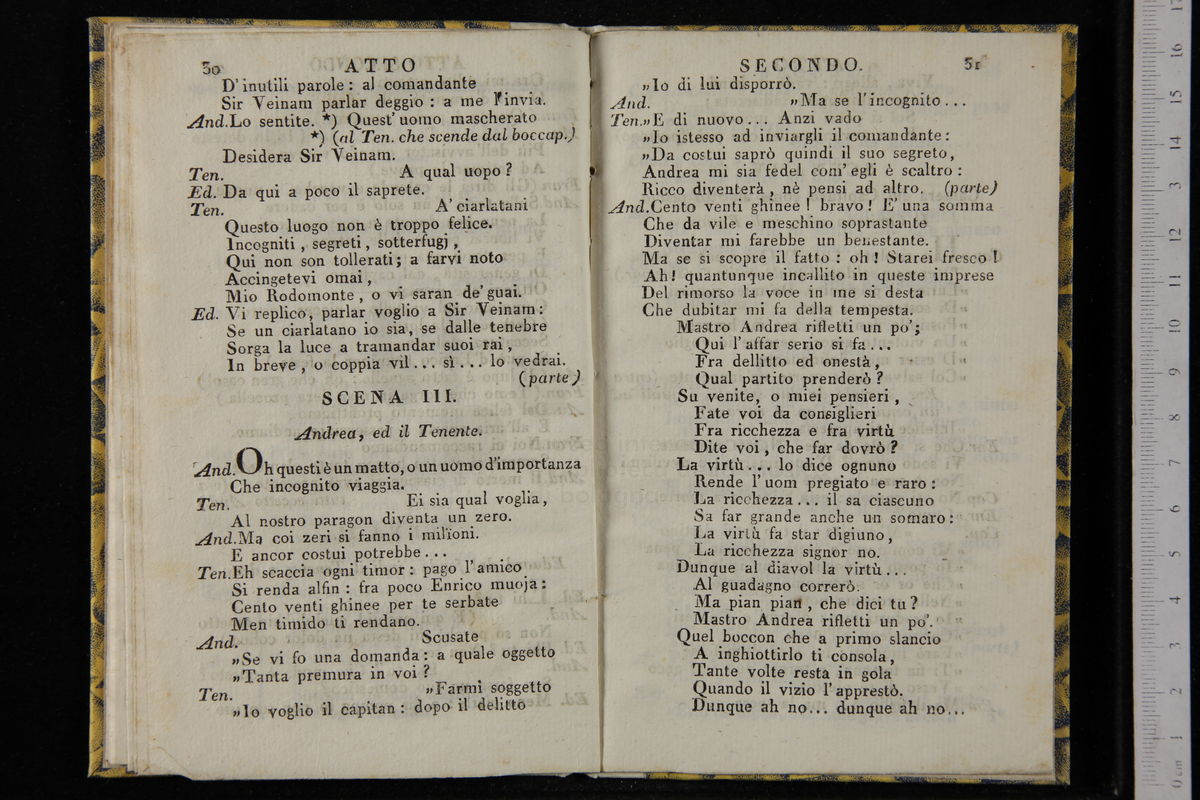 30 ATTO
D' inutili parole : al comandante
Sir Veinam parlar deggio : a me l'invia.
And. Lo sentite. *) Quest' uomo mascherato
*) (al Ten. che scende dal boccap.)
Desidera Sir Veinam.
Ten. A qual uopo ?
Ed. Da qui a poco il saprete.
Ten. A' ciarlatani
Questo luogo non è troppo felice.
Incogniti , segreti , sotterfugj ,
Qui non son tollerati ; a farvi noto
Accingetevi omai ,
Mio Rodomonte , o vi saran de' guai.
Ed. Vi replico, parlar voglio a Sir Veinam :
Se un ciarlatano io sia, se dalle tenebre
Sorga la luce a tramandar suoi rai ,
In breve , o coppia vil . . . sì . . . lo vedrai.
(parte)
SCENA III.
Andrea, ed il Tenente.
And. Oh questi è un matto, o un uomo d'importanza
Che incognito viaggia.
Ten. Ei sia qual voglia ,
Al nostro paragon diventa un zero.
And. Ma coi zeri si fanno i milioni.
E ancor costui potrebbe . . .
Ten. Eh scaccia ogni timor : pago l'amico
Si renda alfin : fra poco Enrico muoja :
Cento venti ghinee per te serbate
Men timido ti rendano.
And. Scusate
„Se vi fo una domanda : a quale oggetto
„Tanta premura in voi ?
Ten. „Farmi soggetto
„Io voglio il capitan : dopo il delitto
SECONDO. 31
„Io di lui disporrò.
And. „Ma se l'incognito . . .
Ten. „E di nuovo . . . Anzi vado
„Io istesso ad inviargli il comandante :
„Da costui saprò quindi il suo segreto ,
Andrea mi sia fedel com' egli è scaltro :
Ricco diventerà , nè pensi ad altro. (parte)
And. Cento venti ghinee ! bravo ! E' una somma
Che da vile e meschino soprastante
Diventar mi farebbe un benestante.
Ma se si scopre il fatto : oh ! Starei fresco !
Ah ! quantunque incallito in queste imprese
Del rimorso la voce in me si desta
Che dubitar mi fa della tempesta.
Mastro Andrea rifletti un po' ;
Qui l' affar serio si fa . . .
Fra dellitto ed onestà ,
Qual partito prenderò ?
Su venite, o miei pensieri ,
Fate voi da consiglieri
Fra ricchezza e fra virtù
Dite voi , che far dovrò ?
La virtù . . . lo dice ognuno
Rende l' uom pregiato e raro :
La ricchezza . . . il sa ciascuno
Sa far grande anche un somaro :
La virtù fa star digiuno ,
La ricchezza signor no.
Dunque al diavol la virtù . . .
Al guadagno correrò.
Ma pian pian , che dici tu ?
Mastro Andrea rifletti un po'.
Quel boccon che a primo slancio
A inghiottirlo ti consola ,
Tante volte resta in gola
Quando il vizio l' apprestò.
Dunque ah no . . . dunque ah no . . .
0 cm 1 2 3 4 5 6 7 8 9 10 11 12 13 14 15 16 17